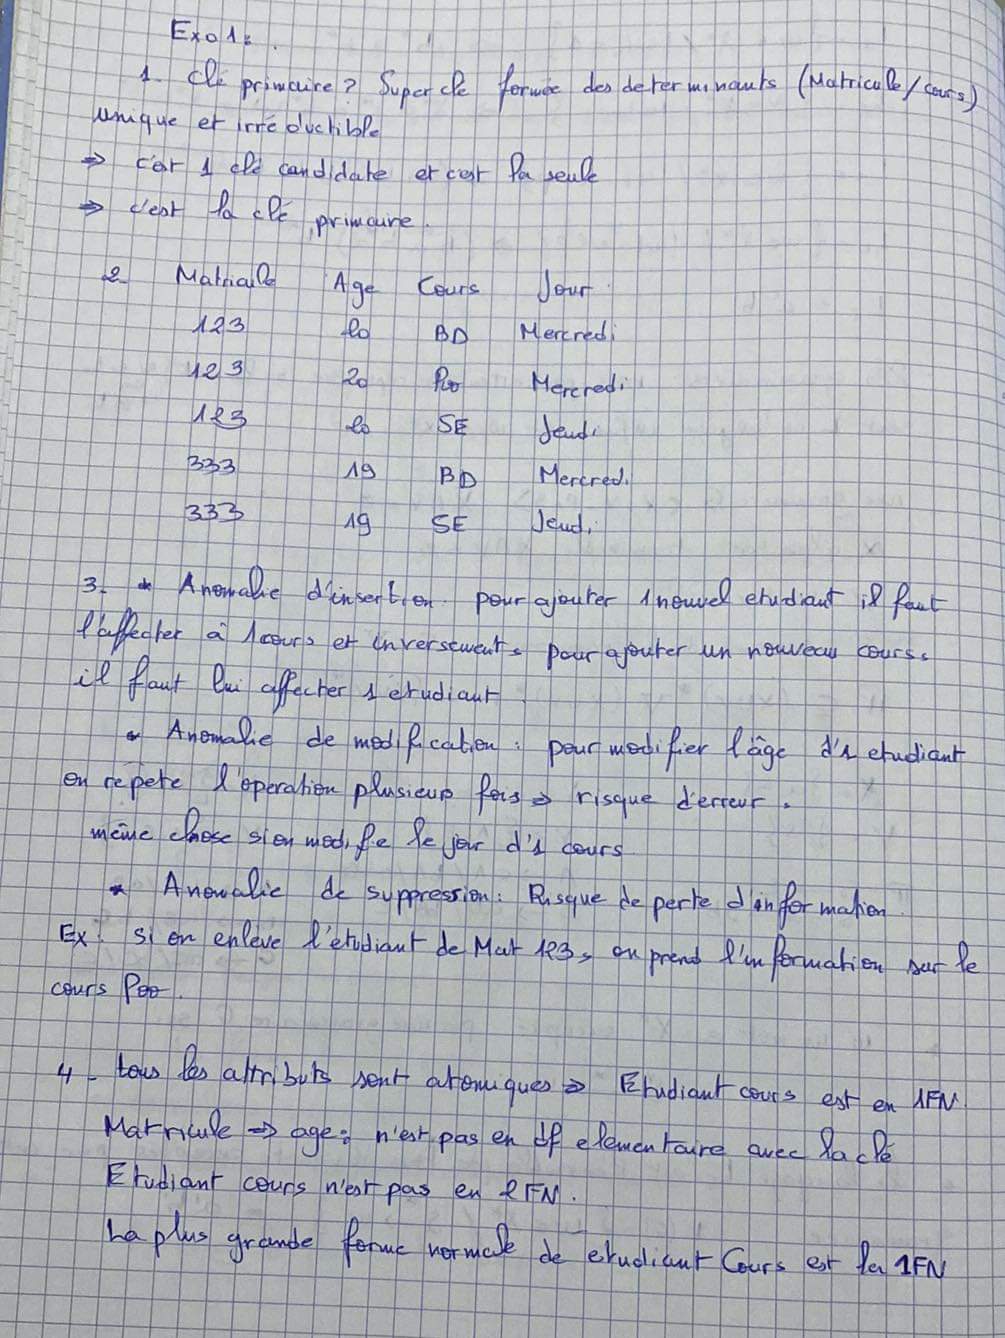 Exo 1 :
1- Clé primaire ? Super clé formée des determinants (Matricule/cours)
unique et irréductible
⇒ c'est 1 clé candidate et c'est la seule
⇒ c'est la clé primaire.
2 Matricule Age Cours Jour
123 20 BD Mercredi
123 20 Poo Mercredi
123 20 SE Jeudi
333 19 BD Mercredi
333 19 SE Jeudi
3- * Anomalie d'insertion pour ajouter 1 nouvel etudiant il faut
l'affecter à 1 cours et inversement, pour ajouter un nouveau cours,
il faut lui affecter 1 etudiant
* Anomalie de modification : pour modifier l'âge d'1 etudiant
on repete l'operation plusieurs fois → risque d'erreur.
même chose si on modifie le jour d'1 cours
* Anomalie de suppression : Risque de perte d'information.
Ex : si on enleve l'etudiant de Mat 123, on prend l'information sur le
cours Poo.
4- tous les attributs sont atomiques → Etudiant cours est en 1FN.
Matricule ⇒ age : n'est pas en df elementaire avec la clé
Etudiant cours n'est pas en 2FN.
La plus grande forme normale de etudiant Cours est la 1FN